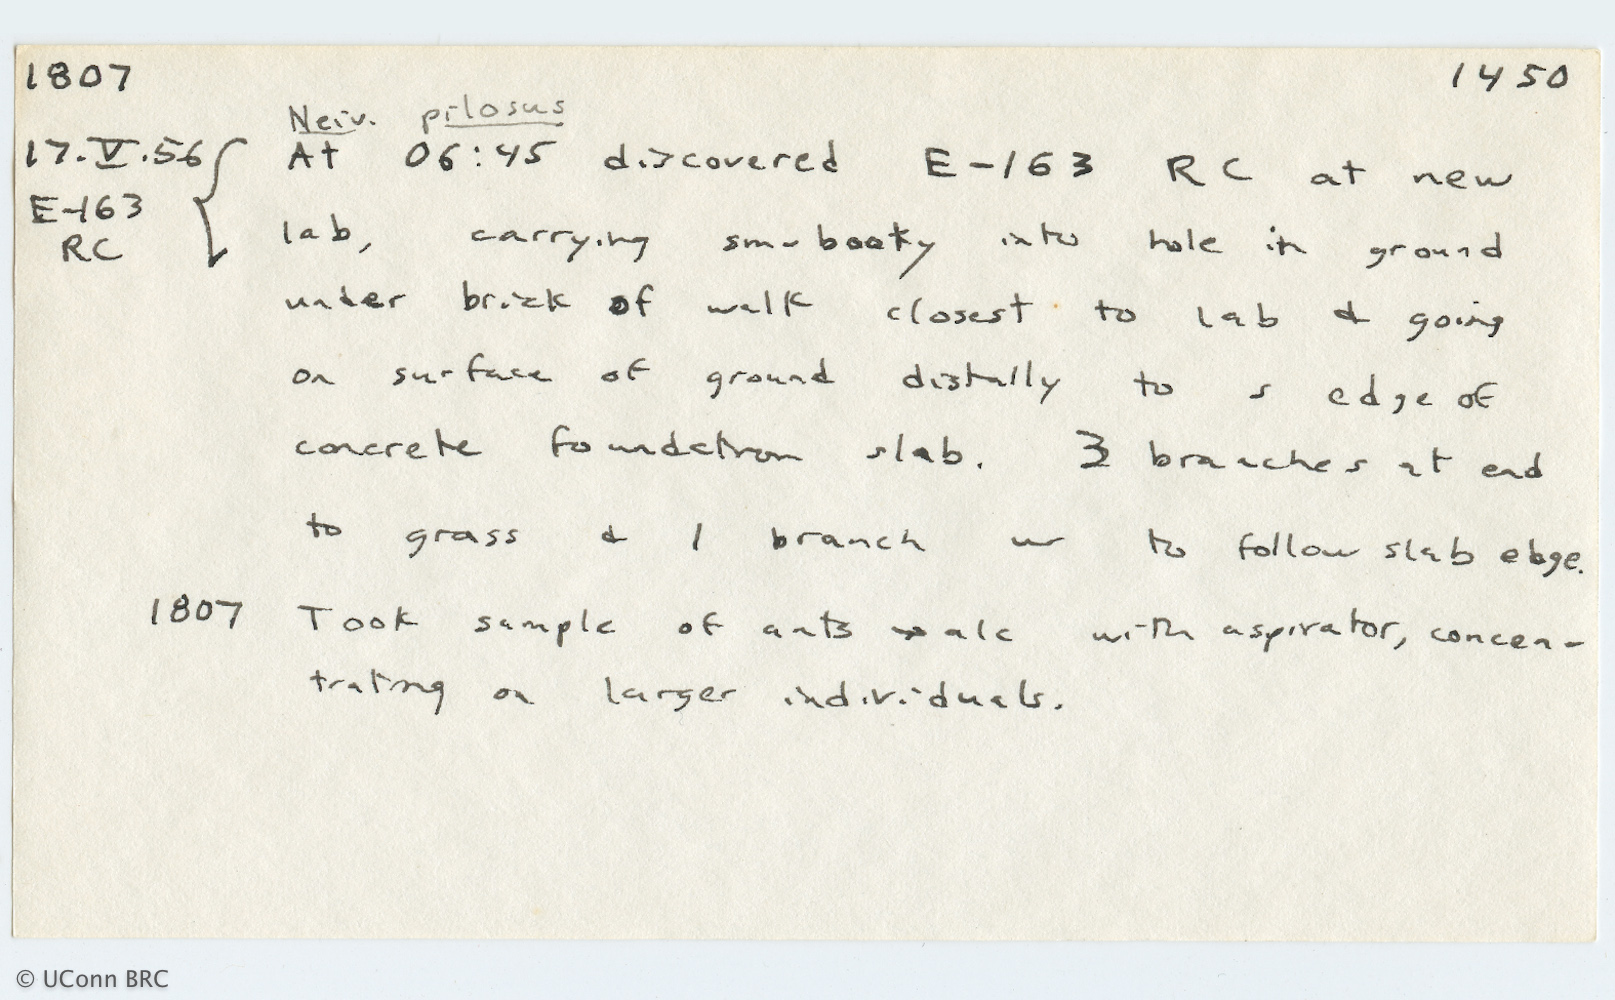 1807 1450
Neiv. pilosus
17.V.56 At 06:45 discovered E-163 RC at new
E-163 lab, carrying sm-booty into hole in ground
RC under brick of walk closest to lab & going
on surface of ground distally to s edge of
concrete foundation slab. 3 branches at end
to grass & 1 branch w to follow slab edge.
1807 Took sample of ants → alc with aspirator, concen-
trating on larger individuals.
© UConn BRC